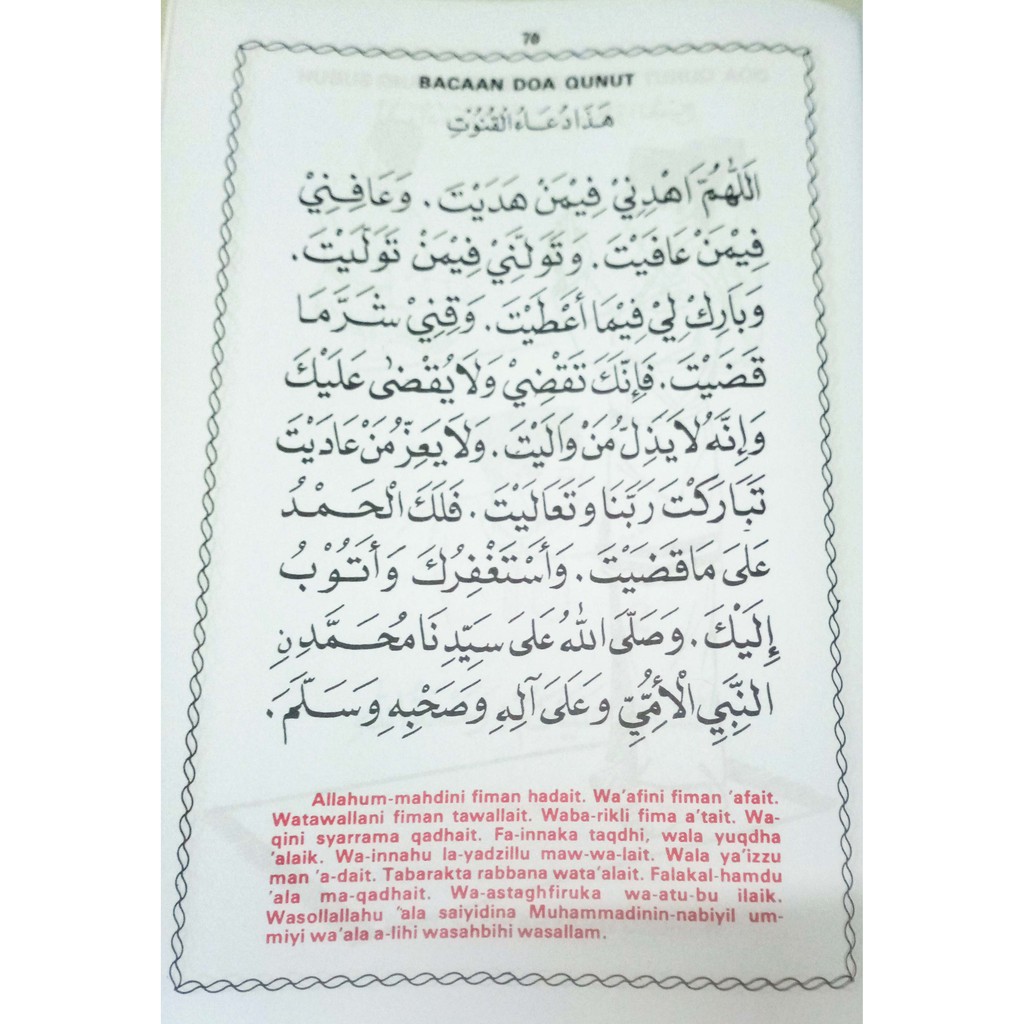 76
BACAAN DOA QUNUT
هَذَا دُعَاءُ الْقُنُوْتِ
اَللّٰهُمَّ اَهْدِنِيْ فِيْمَنْ هَدَيْتَ. وَعَافِنِيْ
فِيْمَنْ عَافَيْتَ. وَتَوَلَّنِيْ فِيْمَنْ تَوَلَّيْتَ.
وَبَارِكْ لِيْ فِيْمَا أَعْطَيْتَ. وَقِنِيْ شَرَّ مَا
قَضَيْتَ. فَإِنَّكَ تَقْضِيْ وَلَا يُقْضٰى عَلَيْكَ
وَإِنَّهُ لَا يَذِلُّ مَنْ وَالَيْتَ. وَلَا يَعِزُّ مَنْ عَادَيْتَ
تَبَارَكْتَ رَبَّنَا وَتَعَالَيْتَ. فَلَكَ الْحَمْدُ
عَلَى مَا قَضَيْتَ. وَأَسْتَغْفِرُكَ وَأَتُوْبُ
إِلَيْكَ. وَصَلَّى اللّٰهُ عَلَى سَيِّدِنَا مُحَمَّدٍنِ
النَّبِيِّ الْأُمِّيِّ وَعَلَى آلِهِ وَصَحْبِهِ وَسَلَّمَ.
Allahum-mahdini fiman hadait. Wa'afini fiman 'afait.
Watawallani fiman tawallait. Waba-rikli fima a'tait. Wa-
qini syarrama qadhait. Fa-innaka taqdhi, wala yuqdha
'alaik. Wa-innahu la-yadzillu maw-wa-lait. Wala ya'izzu
man 'a-dait. Tabarakta rabbana wata'alait. Falakal-hamdu
'ala ma-qadhait. Wa-astaghfiruka wa-atu-bu ilaik.
Wasollallahu "ala saiyidina Muhammadinin-nabiyil um-
miyi wa'ala a-lihi wasahbihi wasallam.